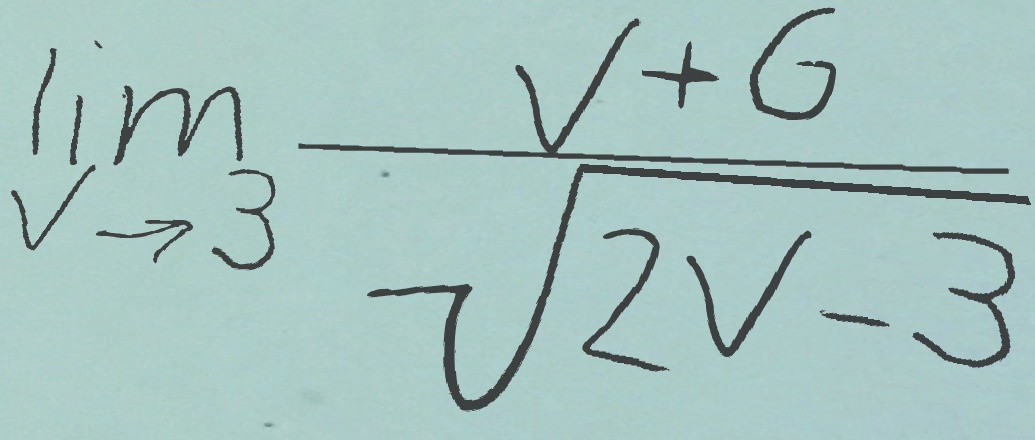 lim_{v→3} \frac{v+6}{\sqrt{2v-3}}